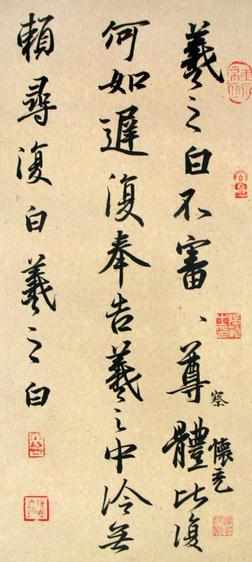 羲之白不審、尊體比復
察 懷充
何如遲復奉告羲之中冷無
賴尋復白羲之白